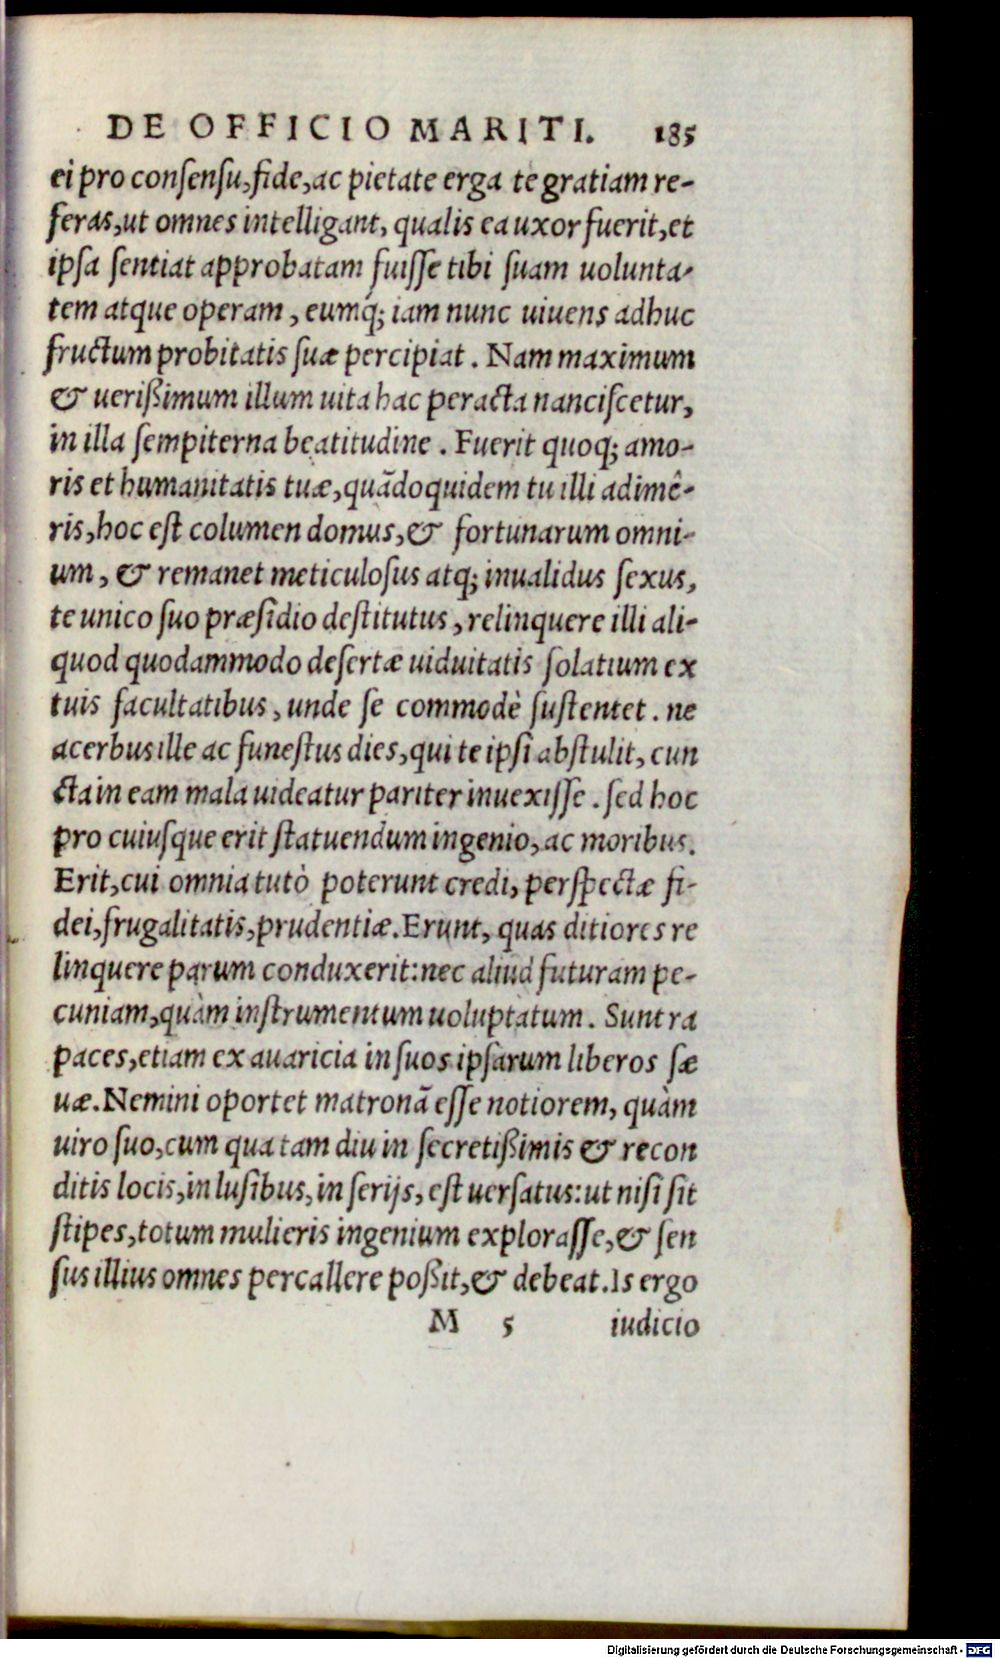 DE OFFICIO MARITI. 185
ei pro consensu, fide, ac pietate erga te gratiam re-
feras, ut omnes intelligant, qualis ea uxor fuerit, et
ipsa sentiat approbatam fuisse tibi suam uolunta-
tem atque operam, eumq́; iam nunc uiuens adhuc
fructum probitatis suæ percipiat. Nam maximum
& uerißimum illum uita hac peracta nanciscetur,
in illa sempiterna beatitudine. Fuerit quoq; amo-
ris et humanitatis tuæ, quãdoquidem tu illi adimê-
ris, hoc est columen domus, & fortunarum omni-
um, & remanet meticulosus atq; inualidus sexus,
te unico suo præsidio destitutus, relinquere illi ali-
quod quodammodo desertæ uiduitatis solatium ex
tuis facultatibus, unde se commodè sustentet. ne
acerbus ille ac funestus dies, qui te ipsi abstulit, cun
cta in eam mala uideatur pariter inuexisse. sed hoc
pro cuiusque erit statuendum ingenio, ac moribus.
Erit, cui omnia tutò poterunt credi, perspectæ fi-
dei, frugalitatis, prudentiæ. Erunt, quas ditiores re
linquere parum conduxerit: nec aliud futuram pe-
cuniam, quàm instrumentum uoluptatum. Sunt ra
paces, etiam ex auaricia in suos ipsarum liberos sæ
uæ. Nemini oportet matronã esse notiorem, quàm
uiro suo, cum qua tam diu in secretißimis & recon
ditis locis, in lusibus, in serijs, est uersatus: ut nisi sit
stipes, totum mulieris ingenium explorasse, & sen
sus illius omnes percallere poßit, & debeat. Is ergo
M 5 iudicio
Digitalisierung gefördert durch die Deutsche Forschungsgemeinschaft - DFG